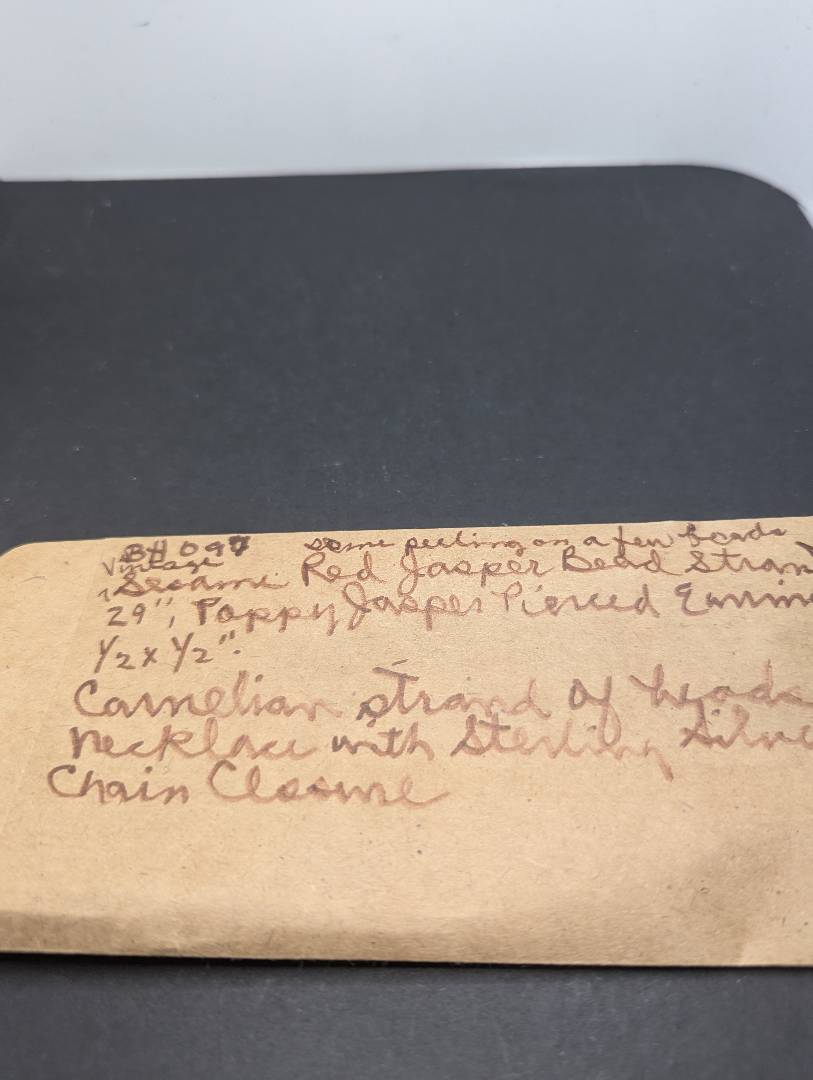 B# 097 some peeling on a few beads
Vintage
Sesame Red Jasper Bead Stran
29", Poppy Jasper Pierced Earrin
1/2 x 1/2".
Carnelian strand of beads
necklace with Sterling Silve
Chain Closure